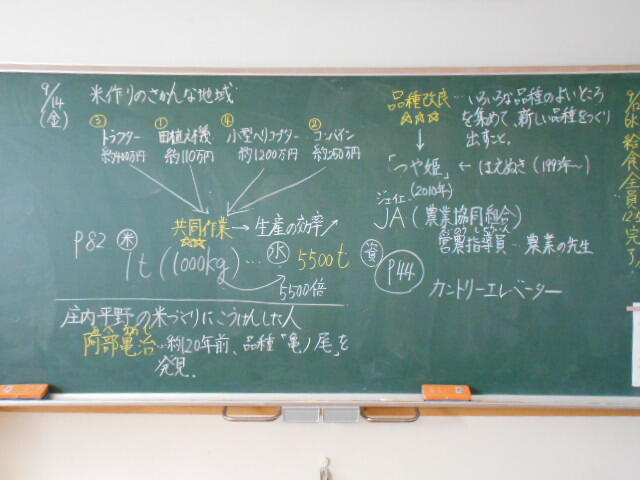 9/14
(金)
米作りのさかんな地域
③ ① ④ ②
トラクター 田植え機 小型ヘリコプター コンバイン
約400万円 約110万円 約1200万円 約250万円
共同作業 → 生産の効率↗
☆☆☆
P82 米 水
1t (1000kg) … 5500t
5500倍
庄内平野の米づくりにこうけんした人
あべ かめじ
阿部亀治…約120年前、品種「亀ノ尾」を
発見。
品種改良…いろいろな品種のよいところ
☆☆☆ を集めて、新しい品種をつくり
出すこと。
↓
「つや姫」 ← はえぬき (1993~)
(2010年)
ジェイエー
JA (農業協同組合)
営農指導員…農業の先生
資
P44
カントリーエレベーター
給食全員完了!!